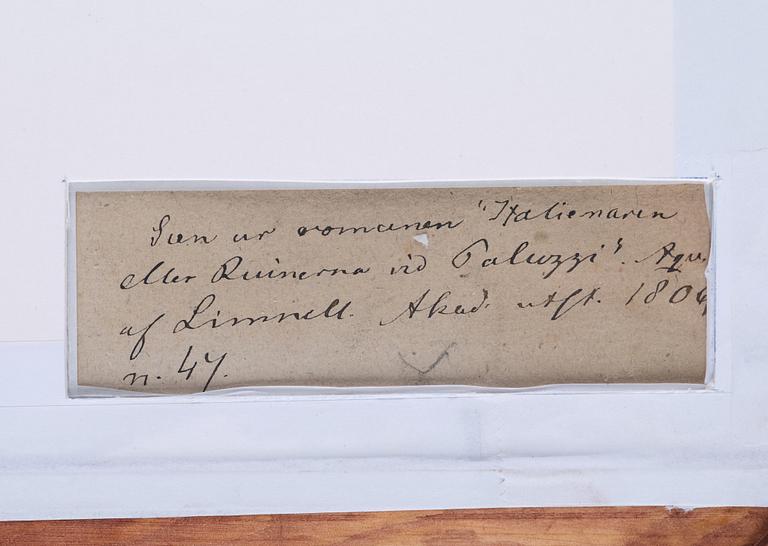 Scen ur romanen "Italienaren
eller Ruinerna vid Paluzzi". Aqv.
af Limnell. Akad. utst.
n. 47.